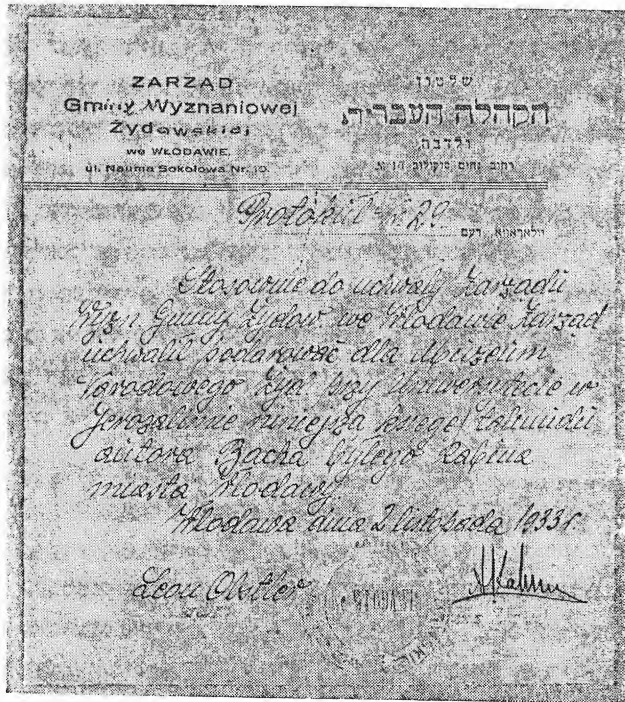 ZARZĄD
Gminy Wyznaniowej
Żydowskiej
we WŁODAWIE.
ul. Nauma Sokołowa Nr. 10.
שלטון
הקהלה העברית
ולדבה
רחוב נחום סוקולוב
Protokuł nr 20
Stosownie do uchwały Zarządu
Wyzn. Gminy Żydow. we Włodawie Zarząd
uchwalił podarować dla Muzeum
Narodowego Żyd. przy Uniwersytecie w
Jerozolimie niniejszą księgę talmudu
autora Bacha byłego Rabina
miasta Włodawy
Włodawa dnia 2 listopada 1933 r.
Leon